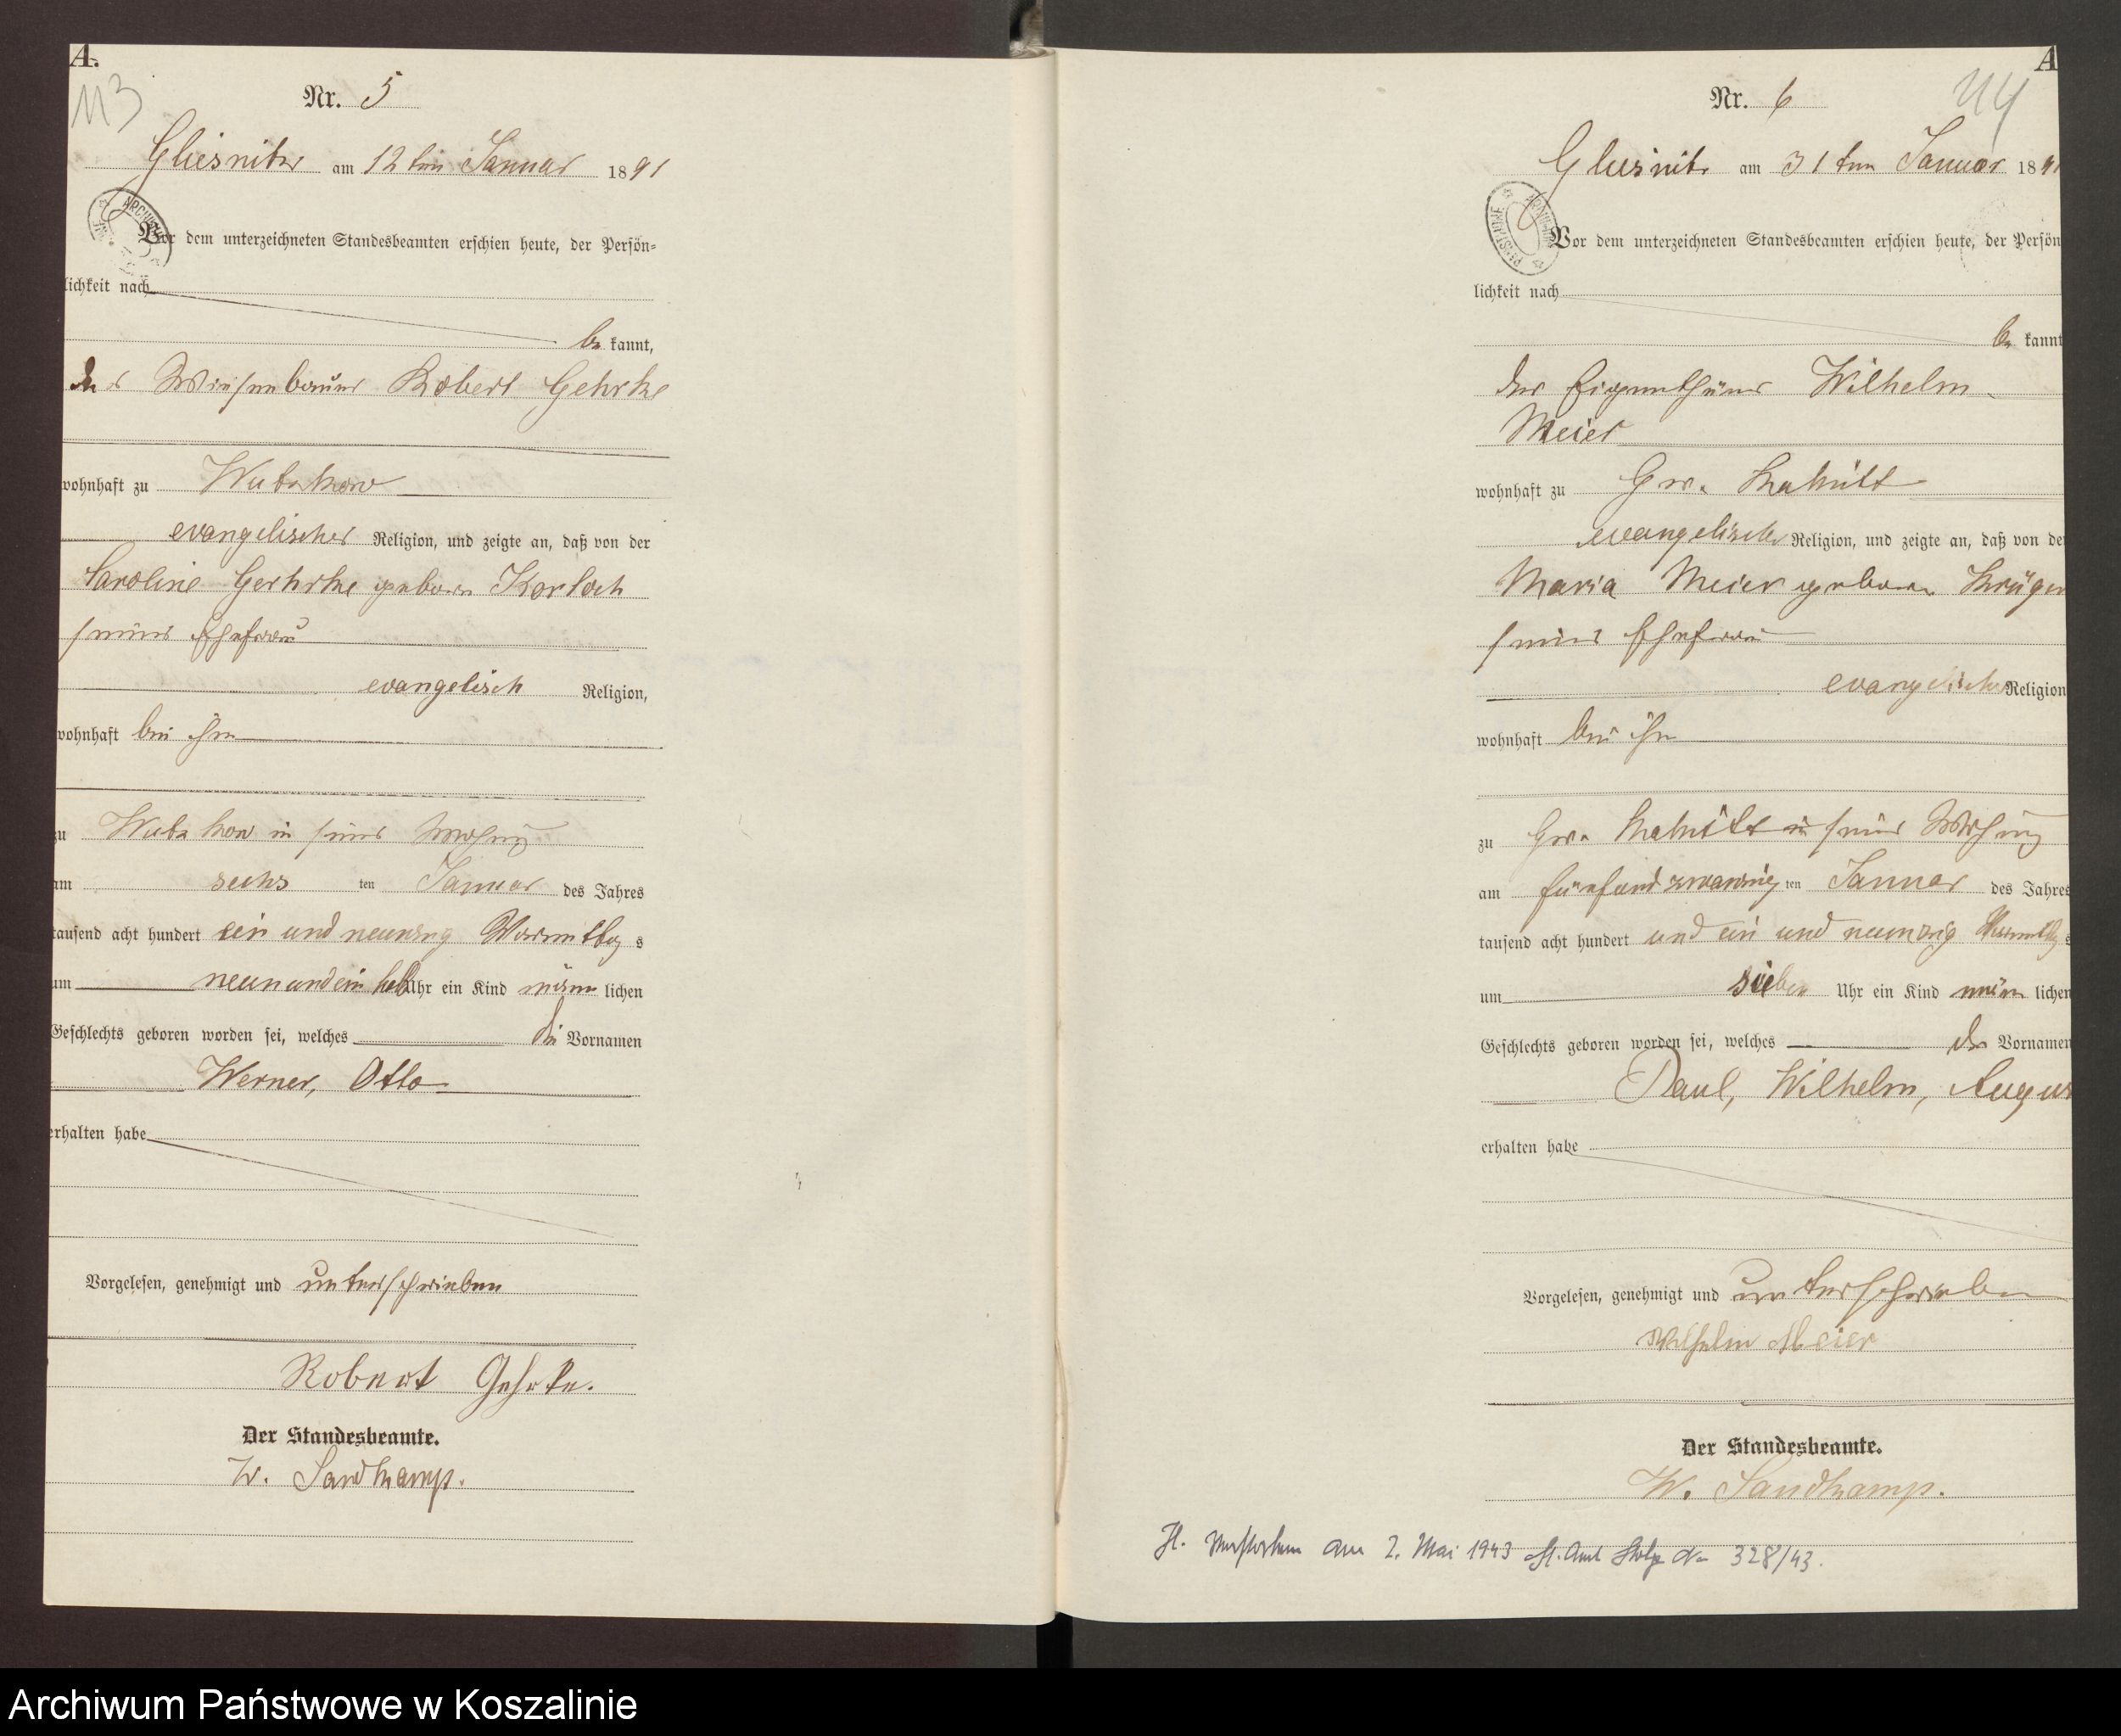 A.
113
Nr. 5
Gliesnitz am 12ten Januar 1891
Vor dem unterzeichneten Standesbeamten erschien heute, der Persön-
lichkeit nach
be kannt,
der Wiesenbauer Robert Gehrke
wohnhaft zu Wutzkow
evangelischer Religion, und zeigte an, daß von der
Caroline Gehrke geboren
seiner Ehefrau
evangelisch Religion,
wohnhaft bei ihm
zu Wutzkow in seiner Wohnung
am sechs ten Januar des Jahres
tausend acht hundert ein und neunzig Vormittag s
um neunundein halb Uhr ein Kind männ lichen
Geschlechts geboren worden sei, welches die Vornamen
Werner, Otto
erhalten habe
Vorgelesen, genehmigt und unterschrieben
Robert Gehrke.
Der Standesbeamte.
W. Sandkamp.
A
114
Nr. 6
Gliesnitz am 31ten Januar 1891
Vor dem unterzeichneten Standesbeamten erschien heute, der Persön
lichkeit nach
be kannt
der Eigenthümer Wilhelm
Meier
wohnhaft zu Gr.
evangelischer Religion, und zeigte an, daß von de
Maria Meier geboren Krüger
seiner Ehefrau
evangelischer Religion
wohnhaft bei ihm
zu Gr. in seiner Wohnung
am fünfundzwanzig ten Januar des Jahres
tausend acht hundert und ein und neunzig Vormittag s
um sieben Uhr ein Kind männ lichen
Geschlechts geboren worden sei, welches die Vornamen
Paul, Wilhelm, Augus
erhalten habe
Vorgelesen, genehmigt und unterschrieben
Wilhelm Meier
Der Standesbeamte.
W. Sandkamp.
verstorben am 2. Mai 1943 St. Amt Stolp Nr 328/43.
Archiwum Państwowe w Koszalinie